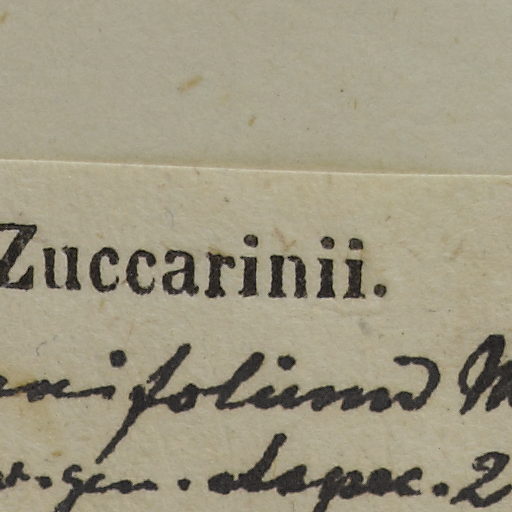 Zuccarinii.
ifolium M
gen. et spec. 2